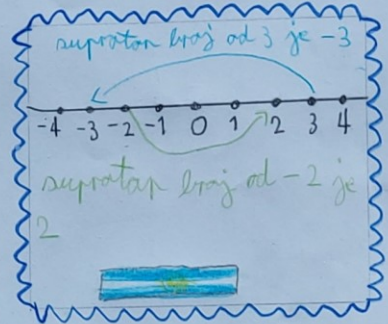 supratan broj od 3 je -3
-4 -3 -2 -1 0 1 2 3 4
supratan broj od -2 je
2